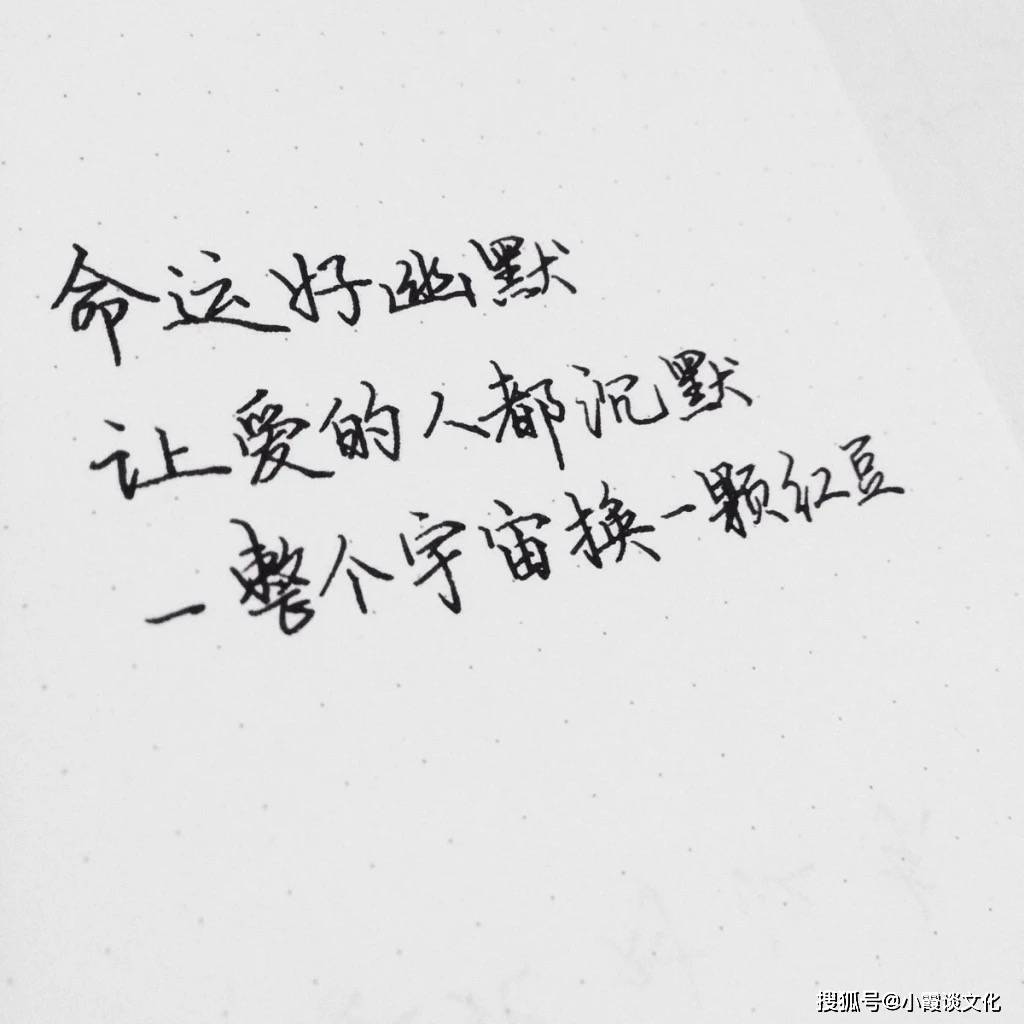 命运好幽默
让爱的人都沉默
一整个宇宙换一颗红豆
搜狐号@小霞谈文化